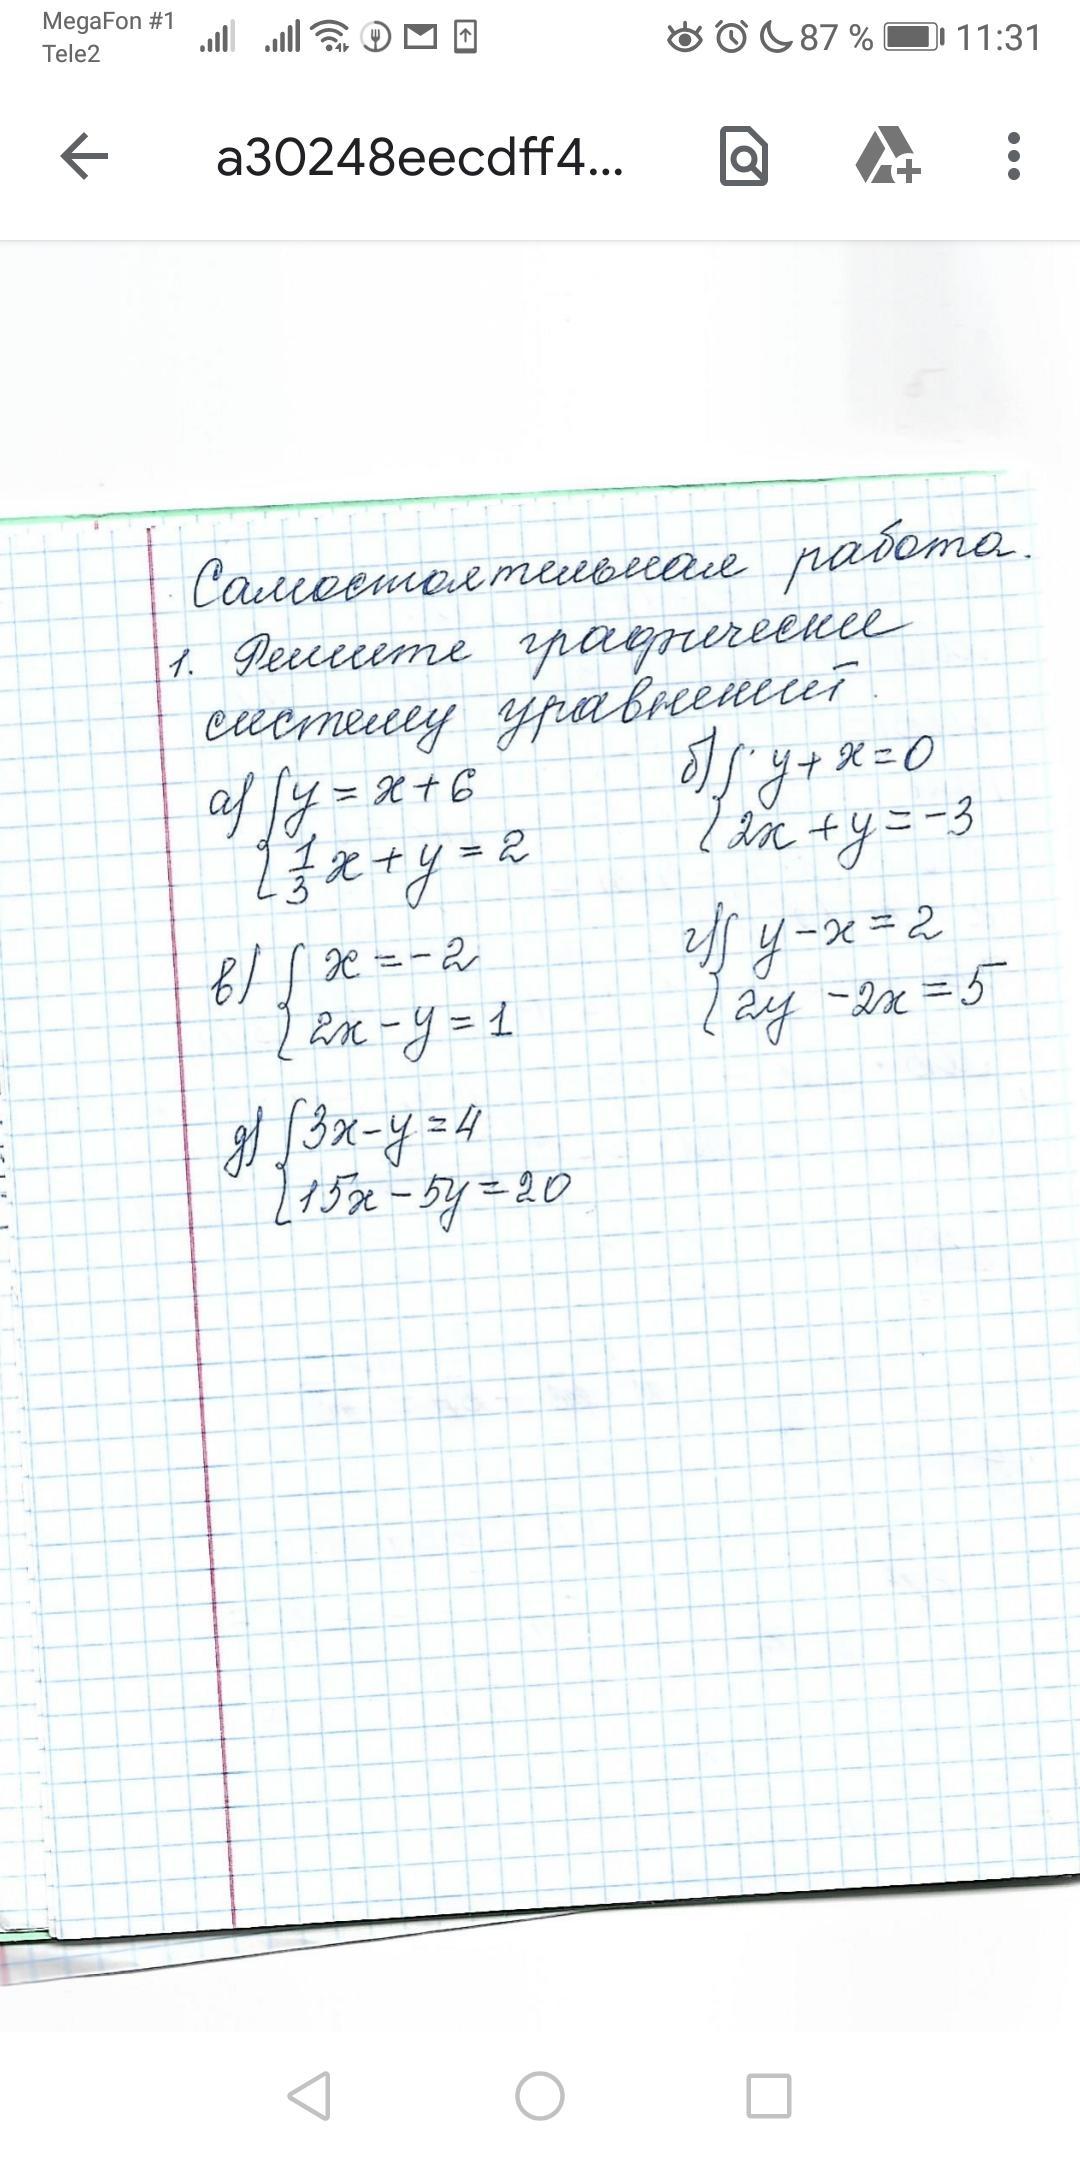 MegaFon #1
Tele2
87 % 11:31
a30248eecdff4...
Самостоятельная работа.
1. Решите графически
систему уравнений.
а) { y = x + 6
1/3 x + y = 2
б) { y + x = 0
2x + y = -3
в) { x = -2
2x - y = 1
г) { y - x = 2
2y - 2x = 5
д) { 3x - y = 4
15x - 5y = 20